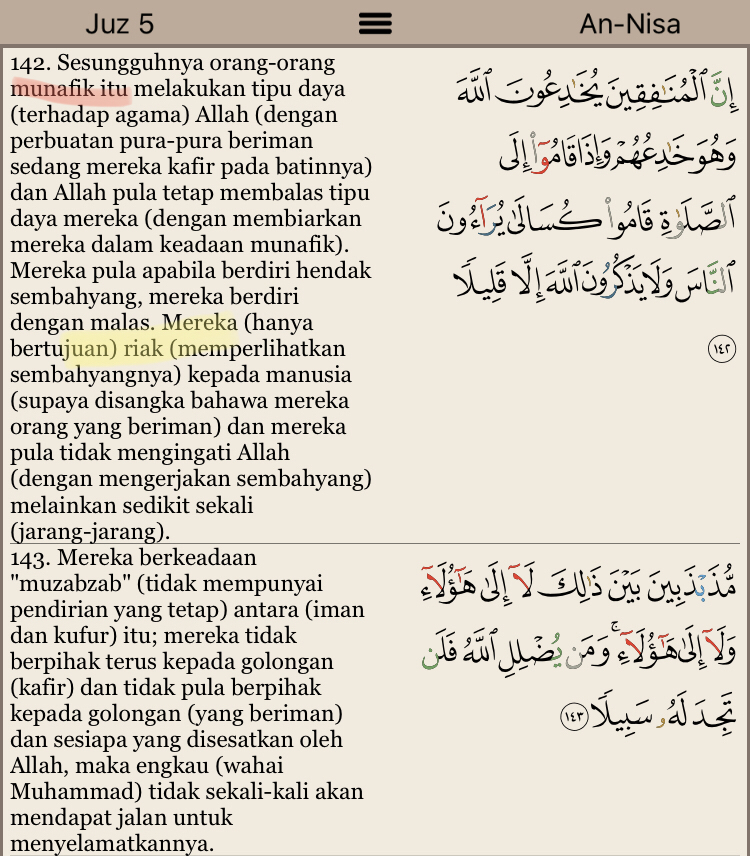 Juz 5
An-Nisa
142. Sesungguhnya orang-orang
munafik itu melakukan tipu daya
(terhadap agama) Allah (dengan
perbuatan pura-pura beriman
sedang mereka kafir pada batinnya)
dan Allah pula tetap membalas tipu
daya mereka (dengan membiarkan
mereka dalam keadaan munafik).
Mereka pula apabila berdiri hendak
sembahyang, mereka berdiri
dengan malas. Mereka (hanya
bertujuan) riak (memperlihatkan
sembahyangnya) kepada manusia
(supaya disangka bahawa mereka
orang yang beriman) dan mereka
pula tidak mengingati Allah
(dengan mengerjakan sembahyang)
melainkan sedikit sekali
(jarang-jarang).
إِنَّ ٱلْمُنَـٰفِقِينَ يُخَـٰدِعُونَ ٱللَّهَ
وَهُوَ خَـٰدِعُهُمْ وَإِذَا قَامُوٓا۟ إِلَى
ٱلصَّلَوٰةِ قَامُوا۟ كُسَالَىٰ يُرَآءُونَ
ٱلنَّاسَ وَلَا يَذْكُرُونَ ٱللَّهَ إِلَّا قَلِيلًا
١٤٢
143. Mereka berkeadaan
"muzabzab" (tidak mempunyai
pendirian yang tetap) antara (iman
dan kufur) itu; mereka tidak
berpihak terus kepada golongan
(kafir) dan tidak pula berpihak
kepada golongan (yang beriman)
dan sesiapa yang disesatkan oleh
Allah, maka engkau (wahai
Muhammad) tidak sekali-kali akan
mendapat jalan untuk
menyelamatkannya.
مُّذَبْذَبِينَ بَيْنَ ذَٰلِكَ لَآ إِلَىٰ هَـٰٓؤُلَآءِ
وَلَآ إِلَىٰ هَـٰٓؤُلَآءِ ۚ وَمَن يُضْلِلِ ٱللَّهُ فَلَن
تَجِدَ لَهُۥ سَبِيلًا ١٤٣